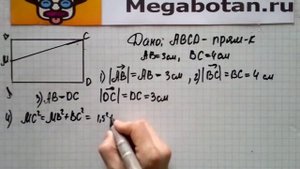 Megabotan.ru
Дано: ABCD - прям-к
AB=3см, BC=4см
1) |AB|=AB=3см, 2) |BC|=BC=4см
3) AB=DC |DC|=DC=3см
4) MC²=MB²+BC²= 1,5²+
C
M